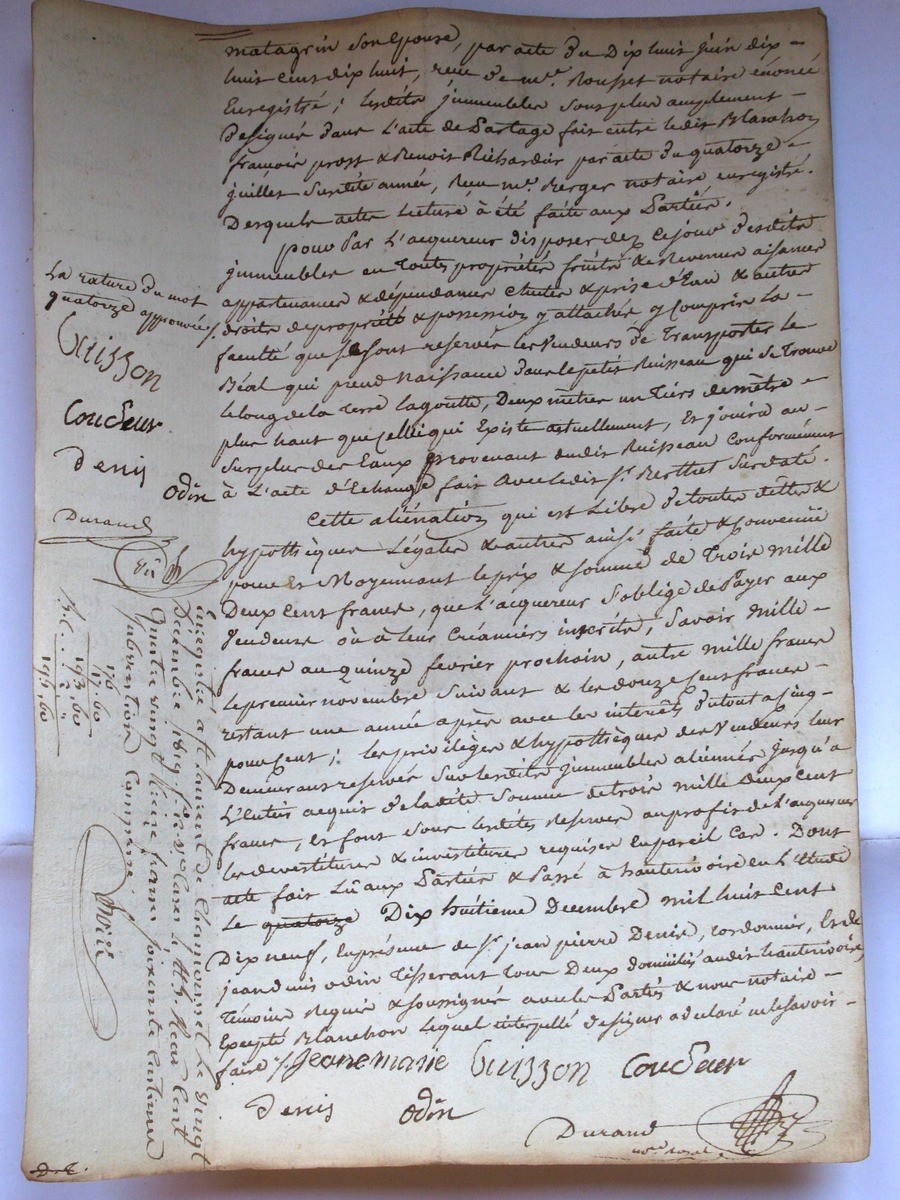 matagrin son Epouse, par acte du Dix huit juin dix-
huit cent dix huit, reçu de me. Rousset notaire énoncé
Enregistré; lesdits jmmeubles sont plus amplement
Designés dans L'acte de Partage fait entre ledit Blanchon
françois prost & Benoit Richardier par acte du quatorze
juillet susdite année, Reçu me. Berger notaire enregistré.
Desquels actes Lecture à été faite aux Parties.
pour Par L'acquereur disposer dez cejour desdits
jmmeubles en Toute propriété fruits & Revenus aisances
appartenances & dépendances chutes & prise d'Eau & autres
droits de propriété & possession y attachés y Compris la
faculté que se sont reservés les Vendeurs de Transporter le
Béal qui prend Naissance dans le petit Ruisseau qui se Trouve
le long de la Terre Lagoutte, Deux mètres un Tiers de mètre
plus haut que Celle qui Existe actuellement, Et jouira au
Surplus des Eaux provenant dudit Ruisseau Conformément
à L'acte d'Echange fait Avec ledit Sr. Berthet Sus daté.
Cette aliénation qui est Libre de toutes dettes &
hypothèques Légales & autres ainsi faite & Convenue
pour Et Moyennant le prix & somme de Trois mille
Deux Cent francs, que L'acquereur s'oblige de Payer aux
Vendeurs où à leurs Créanciers inscrits, Savoir mille
francs au quinze fevrier prochain, autre mille francs
le premier novembre Suivant & les douze Cent francs
restant une année après avec les interêts du tout a Cinq
pour Cent; les privilèges & hypothèques des Vendeurs leur
Demeurans reservés Sur lesdits jmmeubles aliennés jusqu'à
L'Entier acquit de ladite Somme de trois mille deux cent
francs, Et sont sous lesdites reserves au profit de L'acquereur
les devestitures & investitures requises En pareil Cas. Dont
acte fait Lû aux Parties & Passé à hauterivoire en L'Etude
Le quatorze Dix huitieme Decembre mil huit Cent
Dix neuf, En présence de Sr. jean pierre Denis, Cordonnier, Et de
jean denis odin Tisserant Tous Deux domiciliés audit hauterivoire,
Témoins Requis & Soussignés avec les Parties & nous notaire
Excepté Blanchon Lequel interpellé de signer a déclaré ne le savoir
faire /. Jeanemarie Guizzon Coudeur
Denis odin
Durand
La rature du mot
quatorze approuvée /.
Guizzon
Coudeur
Denis
odin
Durand
Enregistré a St Laurent de Chamousset le Vingt
Décembre 1819
Quatre vingt treize francs soixante Centimes
Subvention Comprise
176
17 60
193 60
2 "
195 60